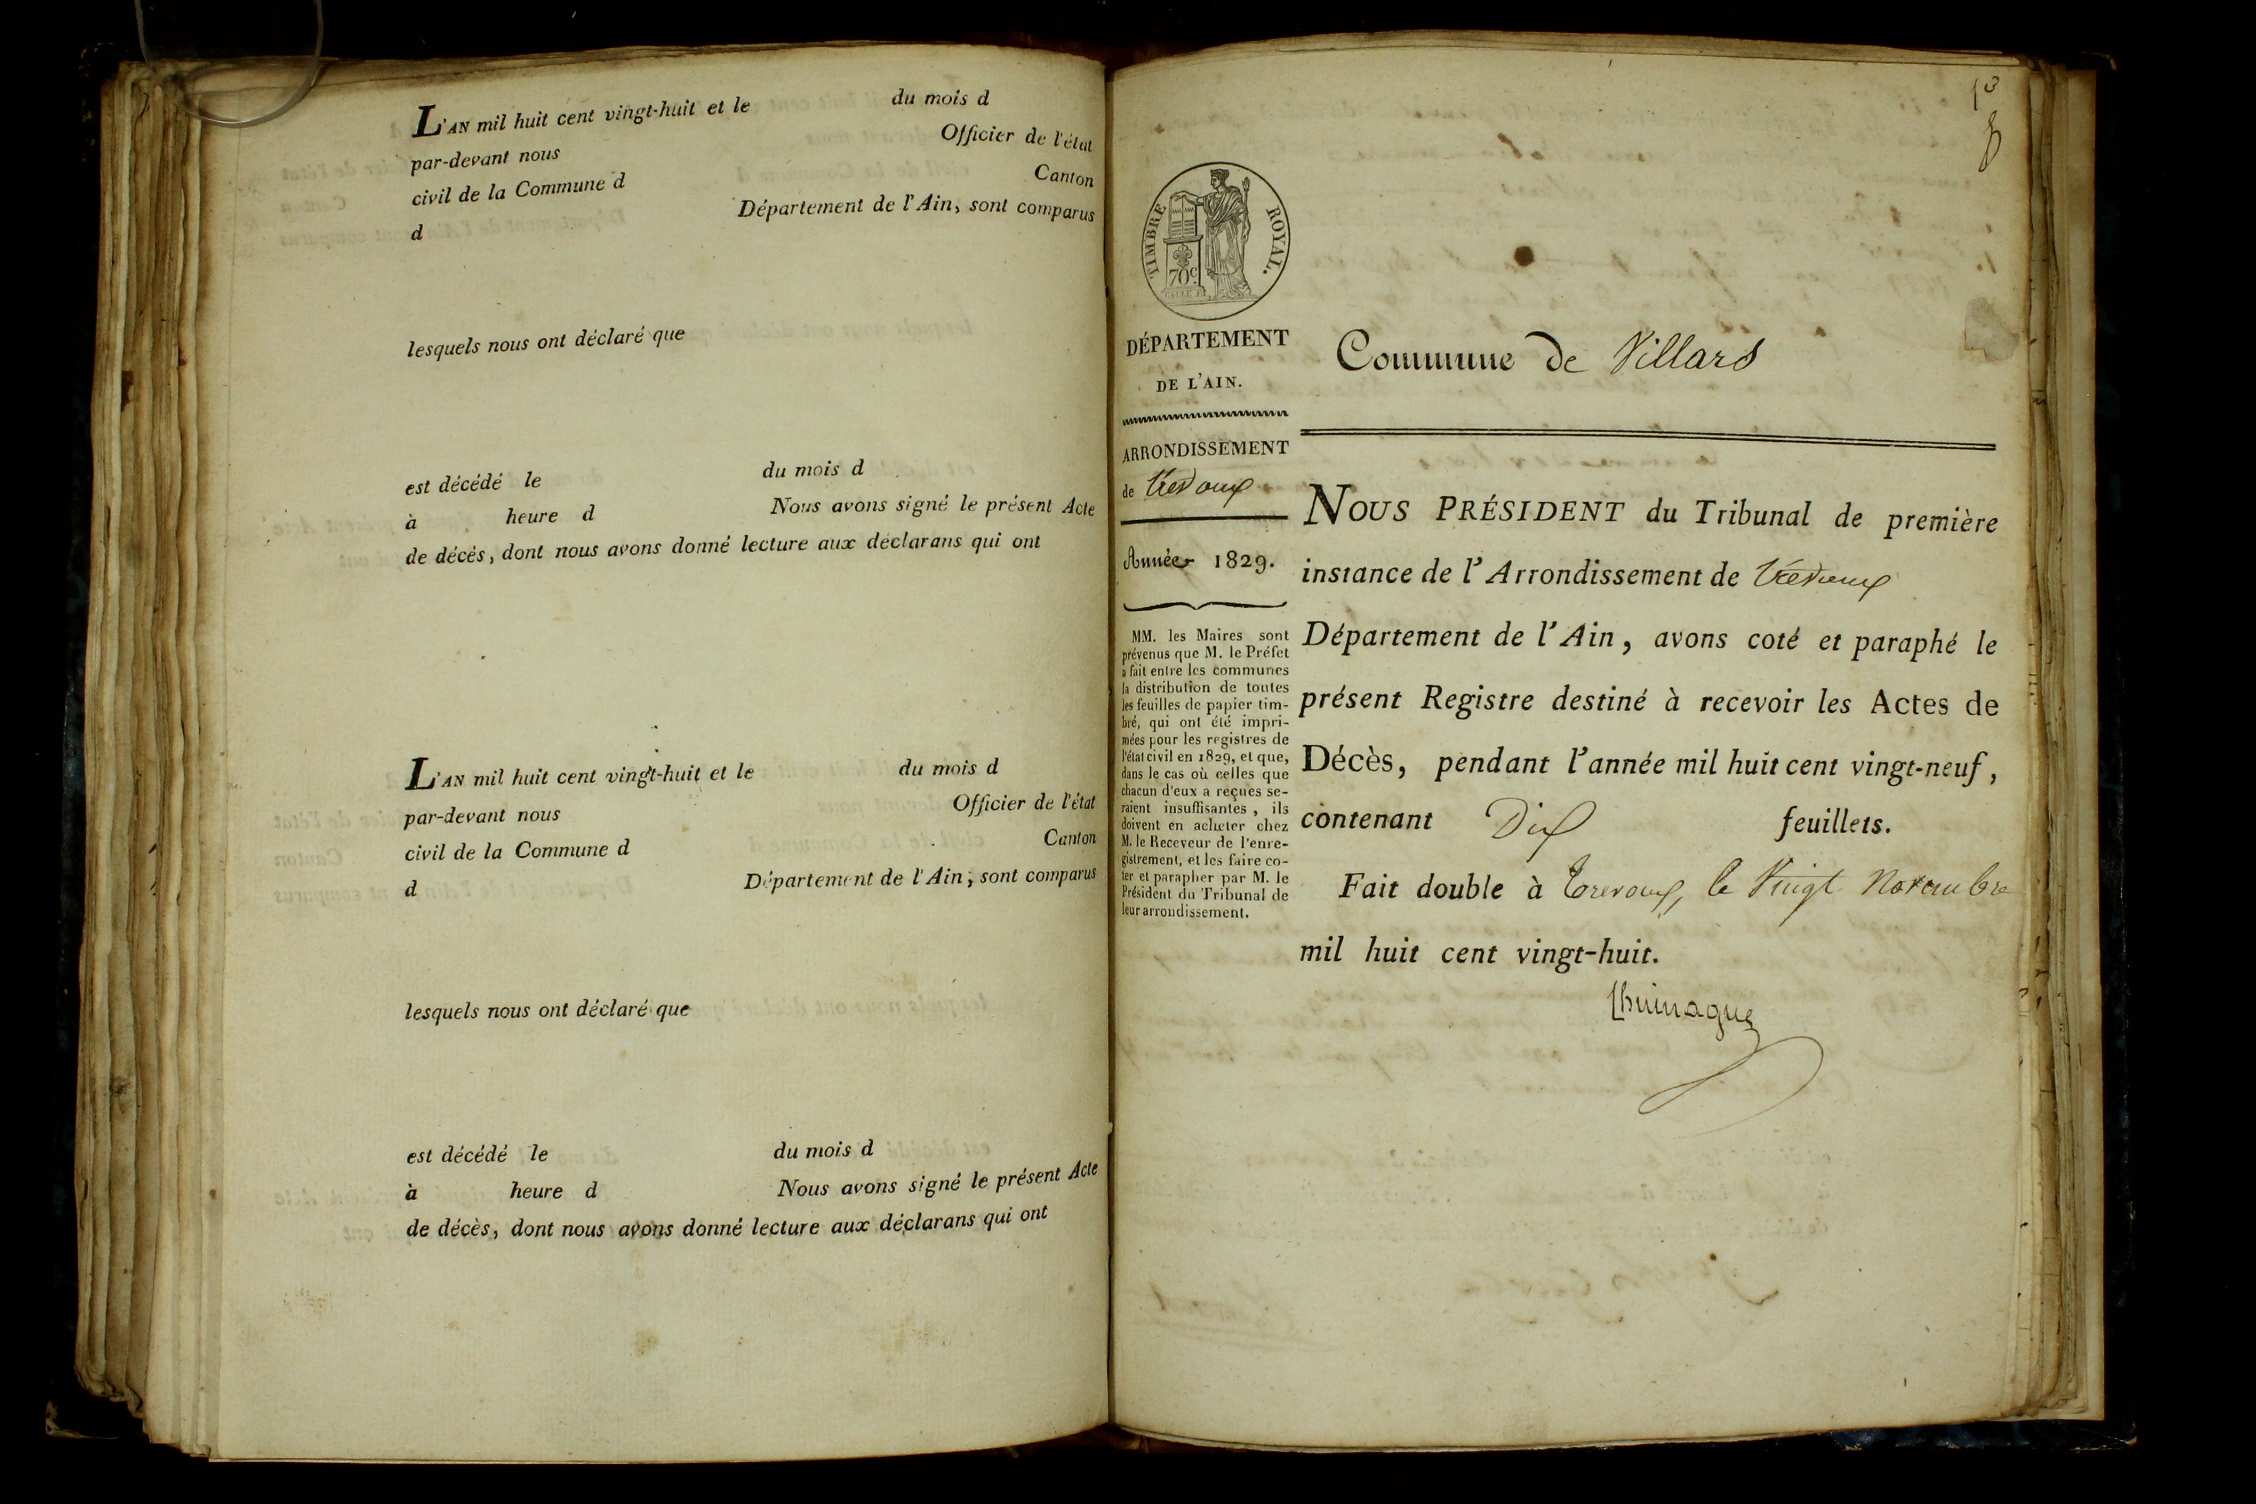 L'AN mil huit cent vingt-huit et le du mois d
par-devant nous Officier de l'état
civil de la Commune d Canton
d Département de l'Ain, sont comparus
lesquels nous ont déclaré que
est décédé le du mois d
à heure d Nous avons signé le présent Acte
de décès, dont nous avons donné lecture aux déclarans qui ont
L'AN mil huit cent vingt-huit et le du mois d
par-devant nous Officier de l'état
civil de la Commune d Canton
d Département de l'Ain, sont comparus
lesquels nous ont déclaré que
est décédé le du mois d
à heure d Nous avons signé le présent Acte
de décès, dont nous avons donné lecture aux déclarans qui ont
TIMBRE ROYAL.
70c
DÉPARTEMENT
DE L'AIN.
ARRONDISSEMENT
de Trévoux
Année 1829.
MM. les Maires sont
prévenus que M. le Préfet
a fait entre les communes
la distribution de toutes
les feuilles de papier tim-
bré, qui ont été impri-
mées pour les registres de
l'état civil en 1829, et que,
dans le cas où celles que
chacun d'eux a reçues se-
raient insuffisantes, ils
doivent en acheter chez
M. le Receveur de l'enre-
gistrement, et les faire co-
ter et parapher par M. le
Président du Tribunal de
leur arrondissement.
Commune de Villars
NOUS PRÉSIDENT du Tribunal de première
instance de l'Arrondissement de Trévoux
Département de l'Ain, avons coté et paraphé le
présent Registre destiné à recevoir les Actes de
Décès, pendant l'année mil huit cent vingt-neuf,
contenant Dix feuillets.
Fait double à Trevoux, le Vingt Novembre
mil huit cent vingt-huit.